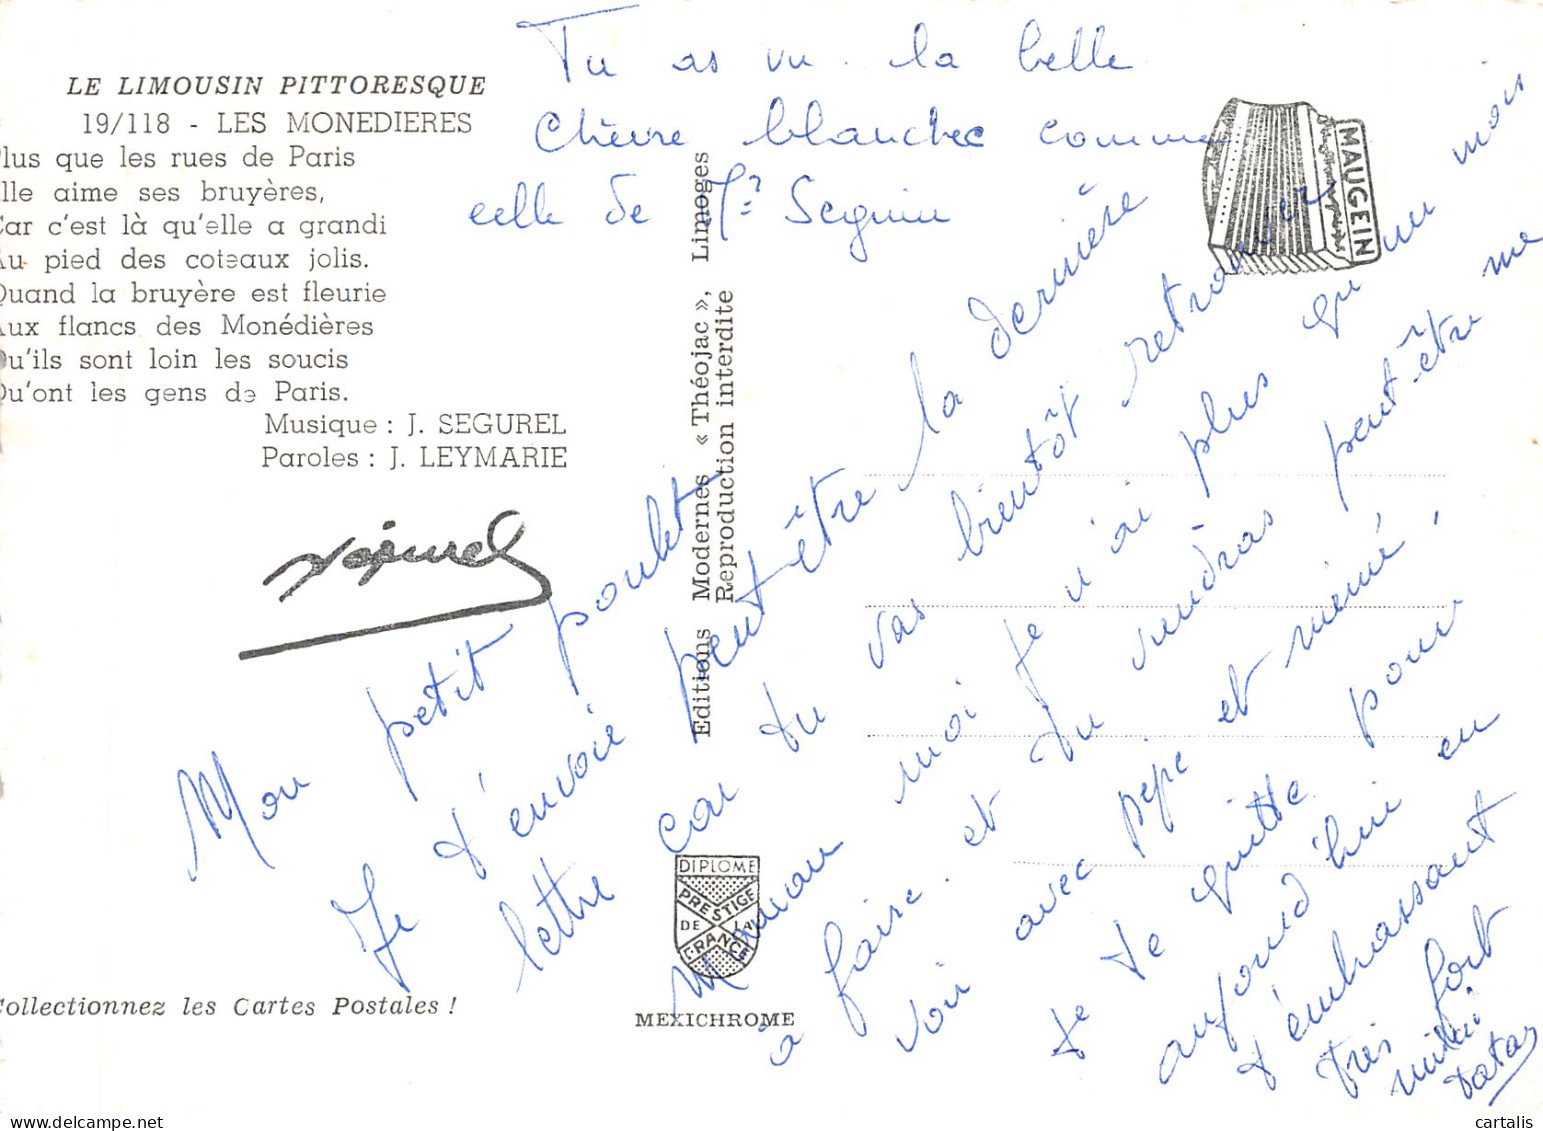 LE LIMOUSIN PITTORESQUE
19/118 - LES MONEDIERES
lus que les rues de Paris
lle aime ses bruyères,
ar c'est là qu'elle a grandi
u pied des coteaux jolis.
Quand la bruyère est fleurie
ux flancs des Monédières
Qu'ils sont loin les soucis
Qu'ont les gens de Paris.
Musique : J. SEGUREL
Paroles : J. LEYMARIE
Segurel
Collectionnez les Cartes Postales !
Editions Modernes « Théojac », Limoges
Reproduction interdite
DIPLOME
PRESTIGE
DE LA
FRANCE
MEXICHROME
MAUGEIN
Tu as vu la belle
Chèvre blanche comme
celle de Mr Seguin
Mon petit poulet
Je t'envoie peut être la dernière
lettre car tu vas bientôt retrouver
Maman moi je n'ai plus qu'un mois
à faire. et tu viendras peut-être me
voir avec pépé et mémé,
je te quitte pour
aujourd'hui en
t'embrassant
très fort
tatas
cartalis